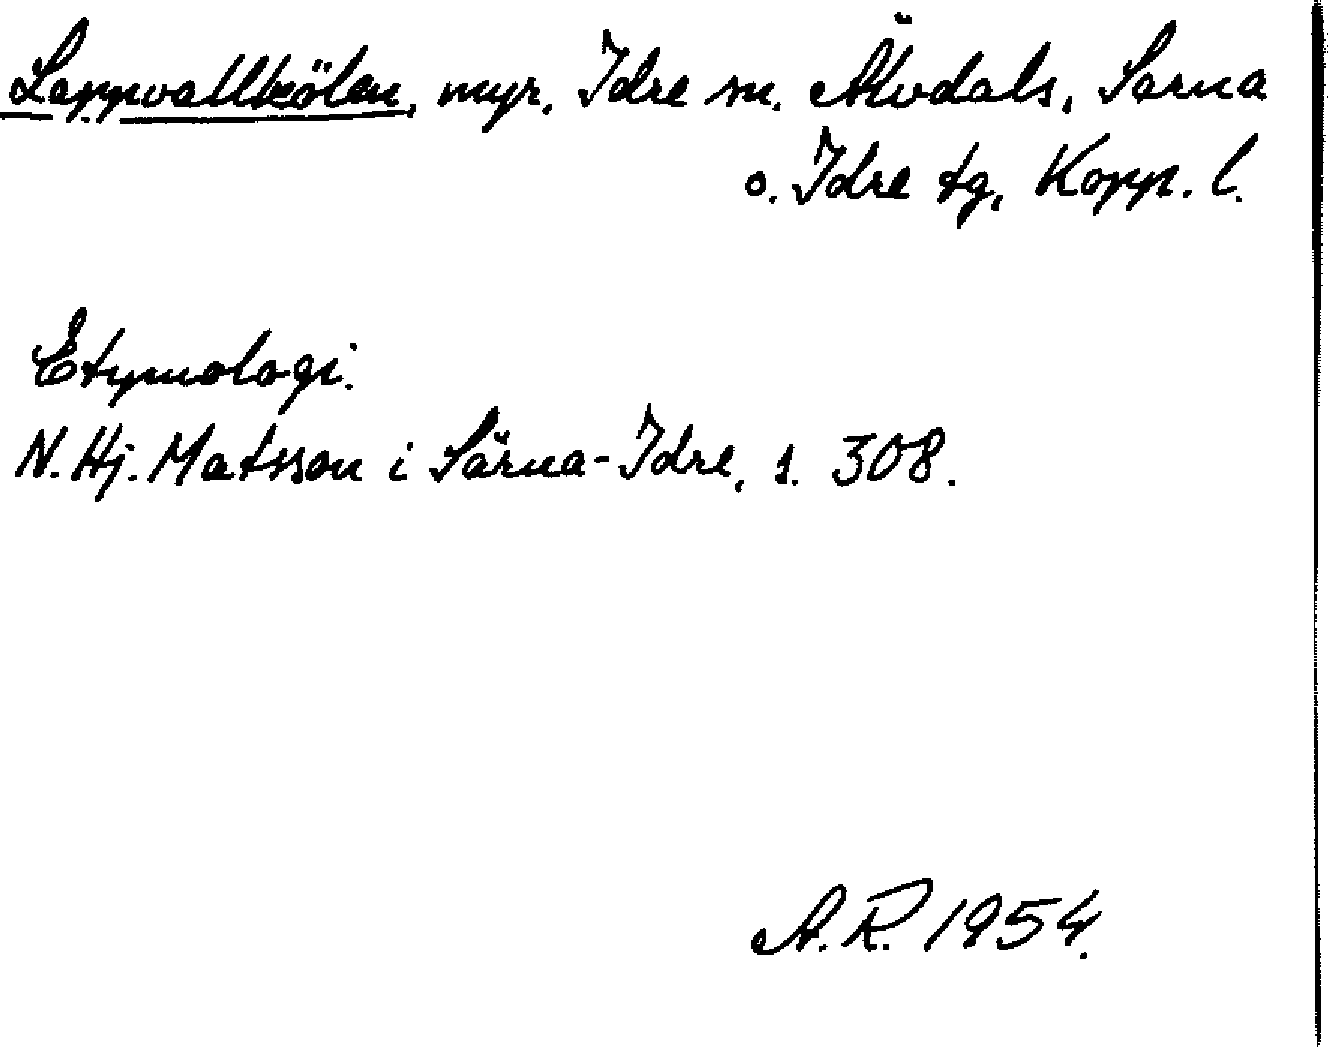 Lappvallkölen, myr, Idre sn. Älvdals, Särna
o. Idre tg, Kopp. l.
Etymologi.
N. Hj. Matsson i Särna-Idre, s. 308.
A.R. 1954.